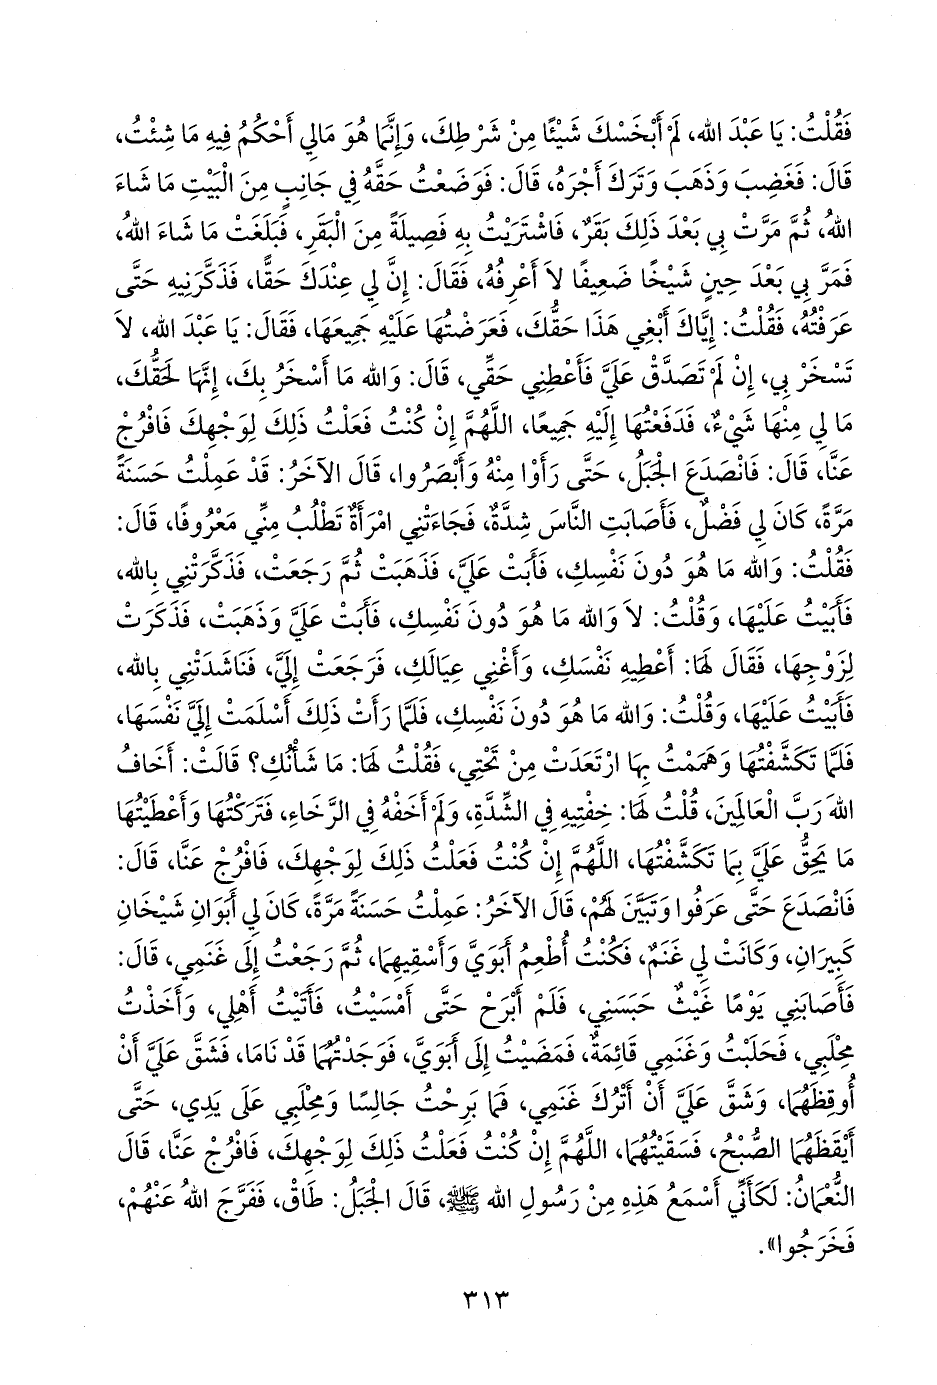 فَقُلْتُ: يَا عَبْدَ الله، لَمْ أَبْخَسْكَ شَيْئًا مِنْ شَرْطِكَ، وَإِنَّمَا هُوَ مَالِي أَحْكُمُ فِيهِ مَا شِئْتُ،
قَالَ: فَغَضِبَ وَذَهَبَ وَتَرَكَ أَجْرَهُ، قَالَ: فَوَضَعْتُ حَقَّهُ فِي جَانِبٍ مِنَ الْبَيْتِ مَا شَاءَ
اللهُ، ثُمَّ مَرَّتْ بِي بَعْدَ ذَلِكَ بَقَرٌ، فَاشْتَرَيْتُ بِهِ فَصِيلَةً مِنَ الْبَقَرِ، فَبَلَغَتْ مَا شَاءَ اللهُ،
فَمَرَّ بِي بَعْدَ حِينٍ شَيْخًا ضَعِيفًا لاَ أَعْرِفُهُ، فَقَالَ: إِنَّ لِي عِنْدَكَ حَقًّا، فَذَكَّرَنِيهِ حَتَّى
عَرَفْتُهُ، فَقُلْتُ: إِيَّاكَ أَبْغِي هَذَا حَقُّكَ، فَعَرَضْتُهَا عَلَيْهِ جَمِيعَهَا، فَقَالَ: يَا عَبْدَ الله، لاَ
تَسْخَرْ بِي، إِنْ لَمْ تَصَدَّقْ عَلَيَّ فَأَعْطِنِي حَقِّي، قَالَ: وَالله مَا أَسْخَرُ بِكَ، إِنَّهَا لَحَقُّكَ،
مَا لِي مِنْهَا شَيْءٌ، فَدَفَعْتُهَا إِلَيْهِ جَمِيعًا، اللَّهُمَّ إِنْ كُنْتُ فَعَلْتُ ذَلِكَ لِوَجْهِكَ فَافْرُجْ
عَنَّا، قَالَ: فَانْصَدَعَ الْجَبَلُ، حَتَّى رَأَوْا مِنْهُ وَأَبْصَرُوا، قَالَ الآخَرُ: قَدْ عَمِلْتُ حَسَنَةً
مَرَّةً، كَانَ لِي فَضْلٌ، فَأَصَابَتِ النَّاسَ شِدَّةٌ، فَجَاءَتْنِي امْرَأَةٌ تَطْلُبُ مِنِّي مَعْرُوفًا، قَالَ:
فَقُلْتُ: وَالله مَا هُوَ دُونَ نَفْسِكِ، فَأَبَتْ عَلَيَّ، فَذَهَبَتْ ثُمَّ رَجَعَتْ، فَذَكَّرَتْنِي بِالله،
فَأَبَيْتُ عَلَيْهَا، وَقُلْتُ: لاَ وَالله مَا هُوَ دُونَ نَفْسِكِ، فَأَبَتْ عَلَيَّ وَذَهَبَتْ، فَذَكَرَتْ
لِزَوْجِهَا، فَقَالَ لَهَا: أَعْطِيهِ نَفْسَكِ، وَأَغْنِي عِيَالَكِ، فَرَجَعَتْ إِلَيَّ، فَنَاشَدَتْنِي بِالله،
فَأَبَيْتُ عَلَيْهَا، وَقُلْتُ: وَالله مَا هُوَ دُونَ نَفْسِكِ، فَلَمَّا رَأَتْ ذَلِكَ أَسْلَمَتْ إِلَيَّ نَفْسَهَا،
فَلَمَّا تَكَشَّفْتُهَا وَهَمَمْتُ بِهَا ارْتَعَدَتْ مِنْ تَحْتِي، فَقُلْتُ لَهَا: مَا شَأْنُكِ؟ قَالَتْ: أَخَافُ
اللهَ رَبَّ الْعَالَمِينَ، قُلْتُ لَهَا: خِفْتِيهِ فِي الشِّدَّةِ، وَلَمْ أَخَفْهُ فِي الرَّخَاءِ، فَتَرَكْتُهَا وَأَعْطَيْتُهَا
مَا يَحِقُّ عَلَيَّ بِمَا تَكَشَّفْتُهَا، اللَّهُمَّ إِنْ كُنْتُ فَعَلْتُ ذَلِكَ لِوَجْهِكَ، فَافْرُجْ عَنَّا، قَالَ:
فَانْصَدَعَ حَتَّى عَرَفُوا وَتَبَيَّنَ لَهُمْ، قَالَ الآخَرُ: عَمِلْتُ حَسَنَةً مَرَّةً، كَانَ لِي أَبَوَانِ شَيْخَانِ
كَبِيرَانِ، وَكَانَتْ لِي غَنَمٌ، فَكُنْتُ أُطْعِمُ أَبَوَيَّ وَأَسْقِيهِمَا، ثُمَّ رَجَعْتُ إِلَى غَنَمِي، قَالَ:
فَأَصَابَنِي يَوْمًا غَيْثٌ حَبَسَنِي، فَلَمْ أَبْرَحْ حَتَّى أَمْسَيْتُ، فَأَتَيْتُ أَهْلِي، وَأَخَذْتُ
مِحْلَبِي، فَحَلَبْتُ وَغَنَمِي قَائِمَةٌ، فَمَضَيْتُ إِلَى أَبَوَيَّ، فَوَجَدْتُهُمَا قَدْ نَامَا، فَشَقَّ عَلَيَّ أَنْ
أُوقِظَهُمَا، وَشَقَّ عَلَيَّ أَنْ أَتْرُكَ غَنَمِي، فَمَا بَرِحْتُ جَالِسًا وَمِحْلَبِي عَلَى يَدِي، حَتَّى
أَيْقَظَهُمَا الصُّبْحُ، فَسَقَيْتُهُمَا، اللَّهُمَّ إِنْ كُنْتُ فَعَلْتُ ذَلِكَ لِوَجْهِكَ، فَافْرُجْ عَنَّا، قَالَ
النُّعْمَانُ: لَكَأَنِّي أَسْمَعُ هَذِهِ مِنْ رَسُولِ الله ﷺ، قَالَ الْجَبَلُ: طَاقْ، فَفَرَّجَ اللهُ عَنْهُمْ،
فَخَرَجُوا».
٣١٣